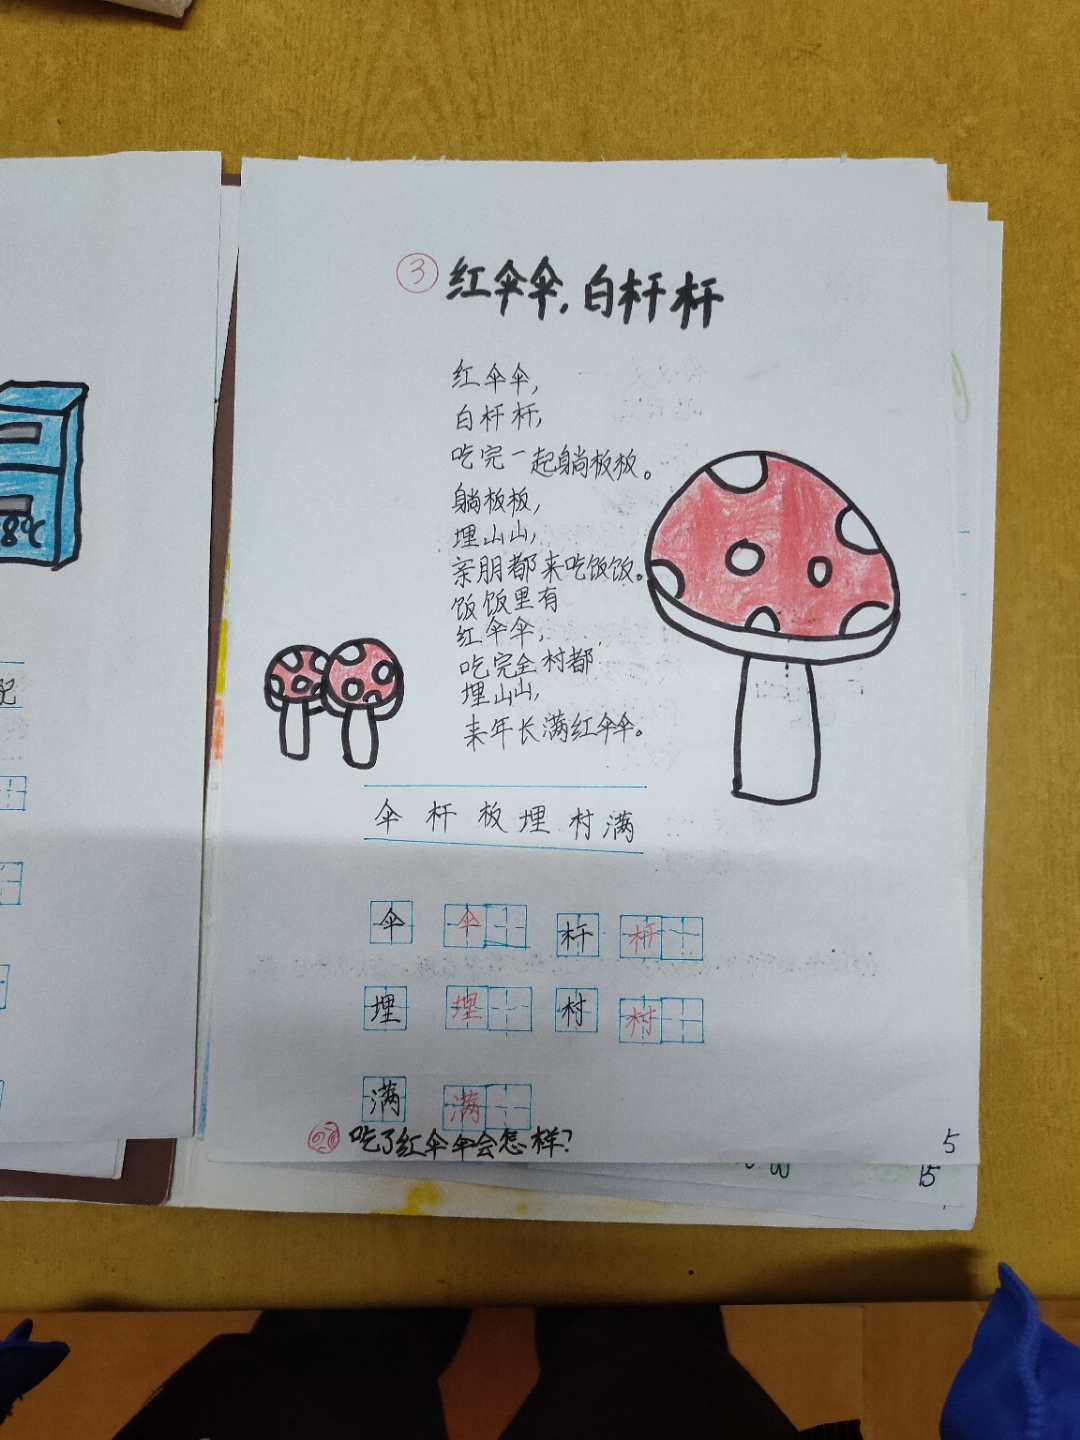 8℃
配
③ 红伞伞，白杆杆
红伞伞，
白杆杆，
吃完一起躺板板。
躺板板，
埋山山，
亲朋都来吃饭饭。
饭饭里有
红伞伞，
吃完全村都
埋山山，
来年长满红伞伞。
伞 杆 板 埋 村 满
伞 伞 杆 杆
埋 埋 村 村
满 满
吃了红伞伞会怎样？
5
15